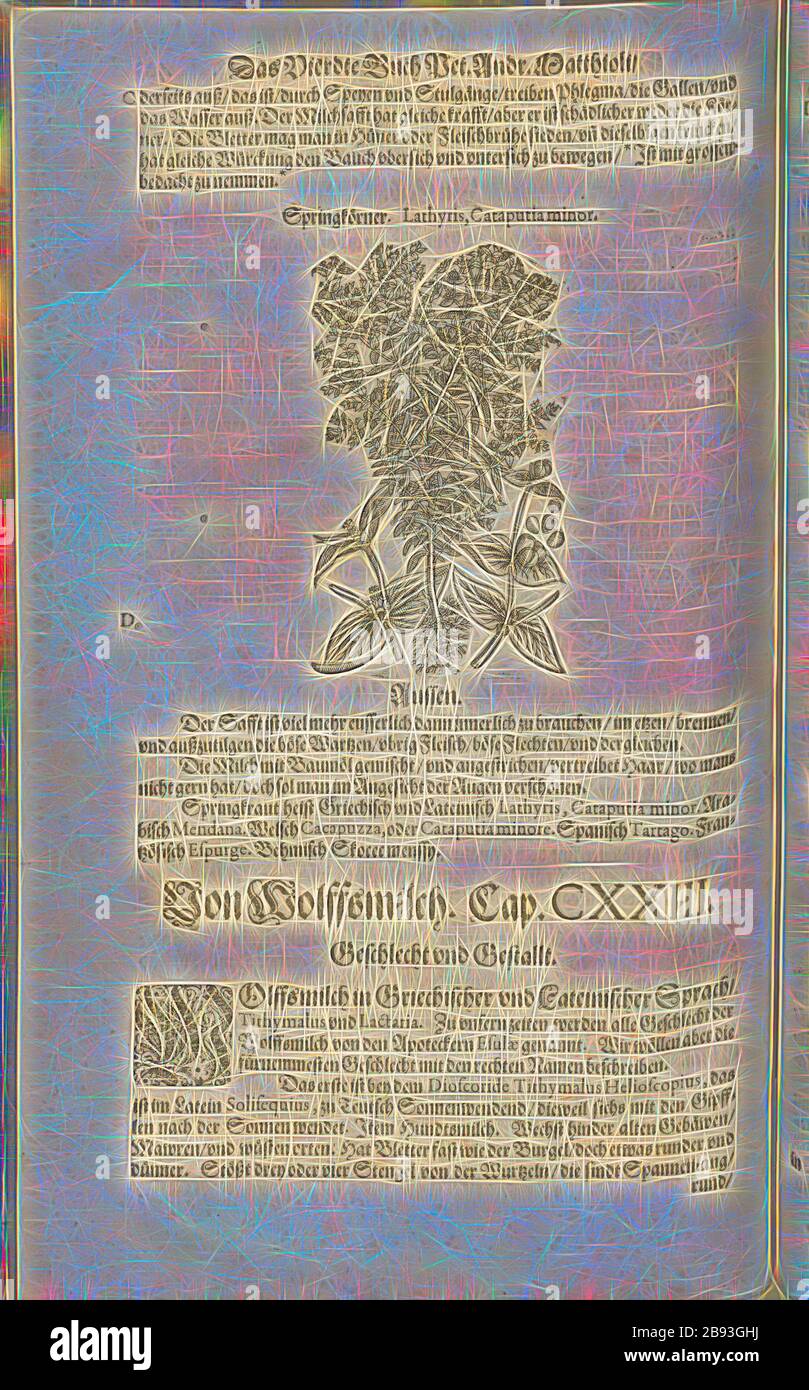 Das Vierdte Buch Pet. Andr. Matthioli/
derseits auß/ das ist/ durch Speyen vnd Stulgänge/ treiben Phlegma/ die Gallen/ vnd
das Wasser auß. Der Milchsafft hat gleiche krafft/ aber er ist schädlicher
Die Bletter mag man in Hüner oder Fleischbrühe sieden/ vñ dieselbigen
hat gleiche Würckung den Bauch obersich vnd vntersich zu bewegen/ * Ist mit grossem
bedacht zu nemmen. *
Springkörner. Lathyris, Cataputia minor.
D.
Aussen.
Der Safft ist viel mehr eusserlich dann innerlich zu brauchen/ im etzen/ brennen/
vnd außzutilgen die böse Wartzen/ vbrig Fleisch/ böse Flechten/ vnd dergleichen.
Die Milch mit Baumöl gemischt/ vnd angestrichen/ vertreibet Haar/ wo mans
nicht gern hat/ doch sol man im Angesicht der Augen verschonen.
Springkraut heist Griechisch vnd Lateinisch Lathyris, Cataputia minor. Ara-
bisch Mendana. Welsch Cacapuzza, oder Cataputia minore. Spanisch Tartago. Fran-
tzösisch Espurge. Behmisch
Von Wolffsmilch. Cap. CXXIIII.
Geschlecht vnd Gestallt.
WOlffsmilch in Griechischer vnd Lateinischer Sprach/
Tithymalus vnd Lactaria. Zu vnsern zeiten werden alle Geschlecht der
Wolffsmilch von den Apoteckern Esulæ genannt. Wir wöllen aber die
fürnemmesten Geschlecht mit den rechten Namen beschreiben.
Das erste ist bey dem Dioscoride Tithymalus Helioscopius, das
ist im Latein Solisequius, zu Teutsch Sonnenwendend/ dieweil sichs mit den Gipff-
len nach der Sonnen wendet. Item Hundtsmilch. Wechst hinder alten Gebäwen/
Mawren/ vnd wüsten orten. Hat Bletter fast wie der Burgel/ doch etwas runder vnd
dünner. Stößt drey oder vier Stengel von der Wurtzeln/ die sindt Spannen lang/
rund/
alamy
Image ID: 2B93GHJ
www.alamy.com